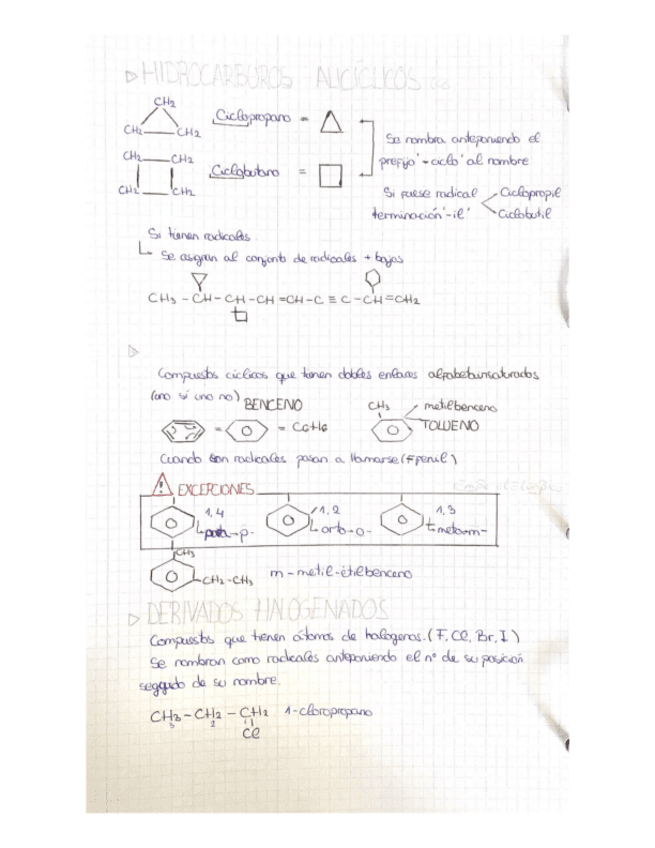 ▷HIDROCARBUROS ALICÍCLICOS
CH2
CH2 CH2
Ciclopropano =
CH2 CH2
CH2 CH2
Ciclobutano =
Se nombra anteponiendo el
prefijo '-ciclo' al nombre
Si fuese radical
terminación '-il'
Ciclopropil
Ciclobutil
Si tienen radicales
Se asignan al conjunto de radicales + bajos
CH3 - CH - CH - CH = CH - C ≡ C - CH = CH2
▷
Compuestos cíclicos que tienen dobles enlaces
(uno sí uno no)
BENCENO
= = C6H6
CH3
metilbenceno
TOLUENO
Cuando son radicales pasan a llamarse (Fenil)
EXCEPCIONES
1,4
para -p-
1,2
orto -o-
1,3
meta -m-
CH3
CH2-CH3
m-metil-etilbenceno
▷ DERIVADOS HALOGENADOS
Compuestos que tienen átomos de halógenos. (F, Cl, Br, I)
Se nombran como radicales anteponiendo el nº de su posición
seggudo de su nombre.
CH3 - CH2 - CH2 1-cloropropano
3 2 1
Cl